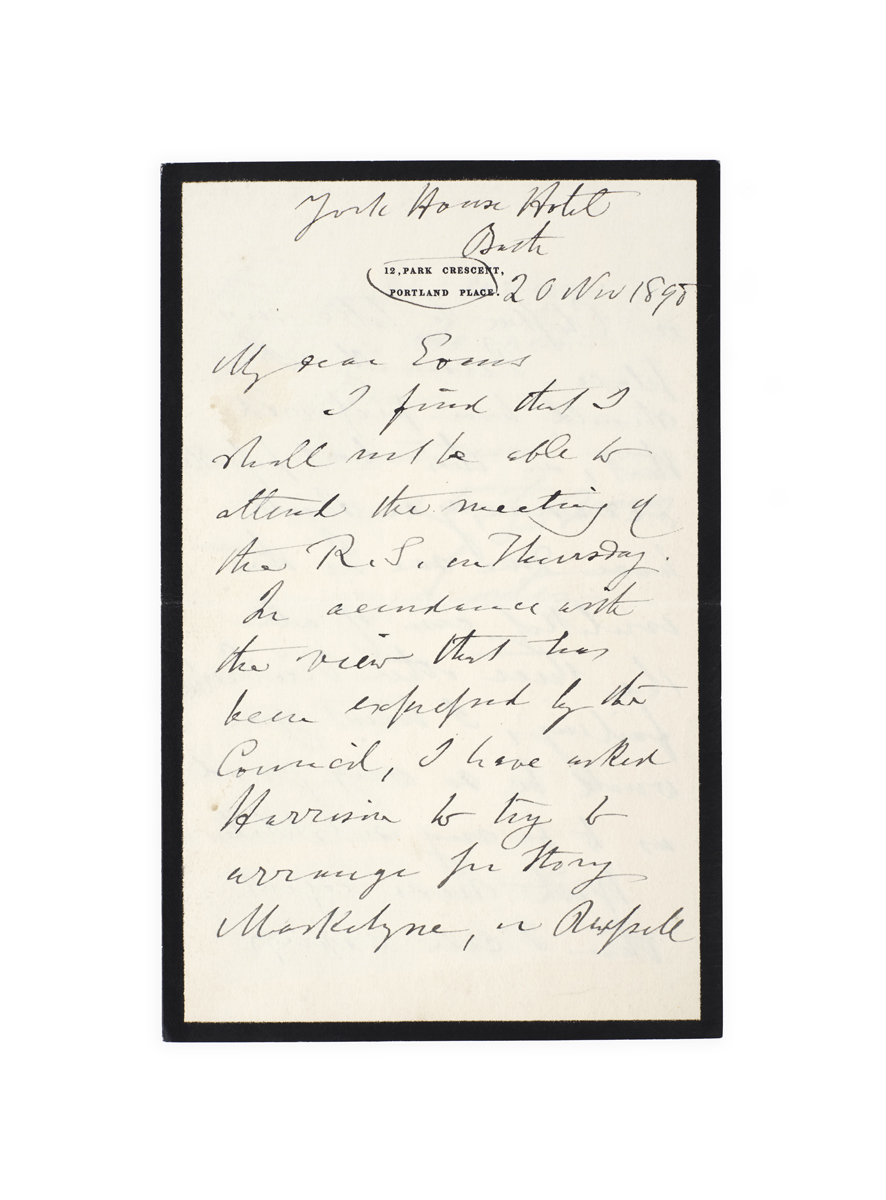 York House Hotel
Bath
12, PARK CRESCENT,
PORTLAND PLACE.
20 Nov 1898
My dear Evans
I find that I
shall not be able to
attend the meeting of
the R.S. on Thursday.
In accordance with
the view that has
been expressed by the
Council, I have asked
Harrison to try to
arrange for Story
Maskelyne, or Russell